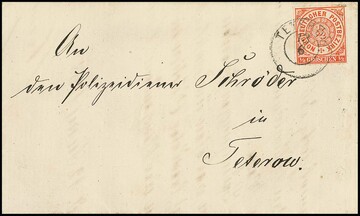 An
den Polizeidiener Schröder
in
Teterow.
NORDDEUTSCHER POSTBEZIRK
GROSCHEN